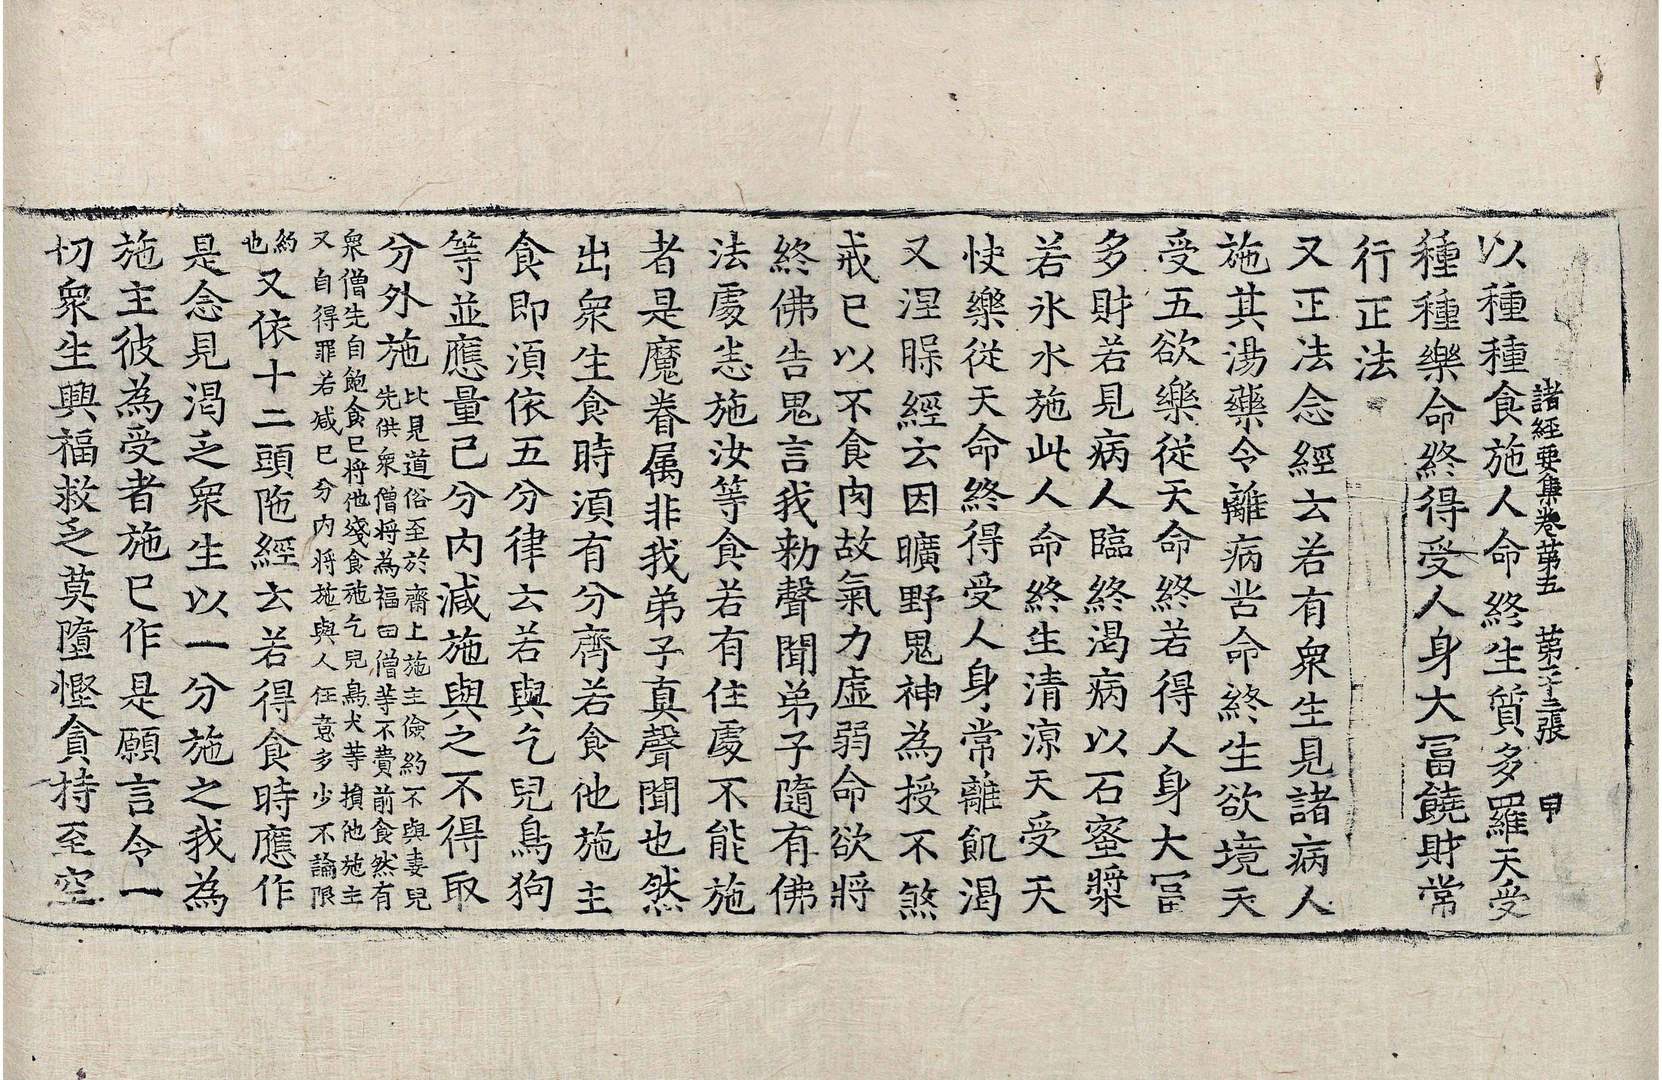 諸経要集卷苐五 苐二十三張 甲
以種種食施人命終生質多羅天受
種種樂命終得受人身大冨饒財常
行正法
又正法念經云若有衆生見諸病人
施其湯藥令離病苦命終生欲境天
受五欲樂從天命終若得人身大冨
多財若見病人臨終渇病以石蜜漿
若氷水施此人命終生清涼天受天
快樂從天命終得受人身常離飢渇
又涅槃經云因曠野鬼神為授不煞
戒已以不食肉故氣力虛弱命欲將
終佛告鬼言我勑聲聞弟子隨有佛
法處悉施汝等食若有住處不能施
者是魔眷属非我弟子真聲聞也然
出衆生食時湏有分齊若食他施主
食即湏依五分律云若與乞兒鳥狗
等並應量已分內減施與之不得取
分外施比見道俗至於齋上施主儉約不與妻兒
先供衆僧將為福田僧等不費前食然有
衆僧先自飽食已將他殘食施乞兒鳥犬等損他施主
又自得罪若减已分内將施與人任意多少不論限
約
也又依十二頭陁經云若得食時應作
是念見渇乏衆生以一分施之我為
施主彼為受者施已作是願言令一
切衆生興福救乏莫墮慳貪持至空